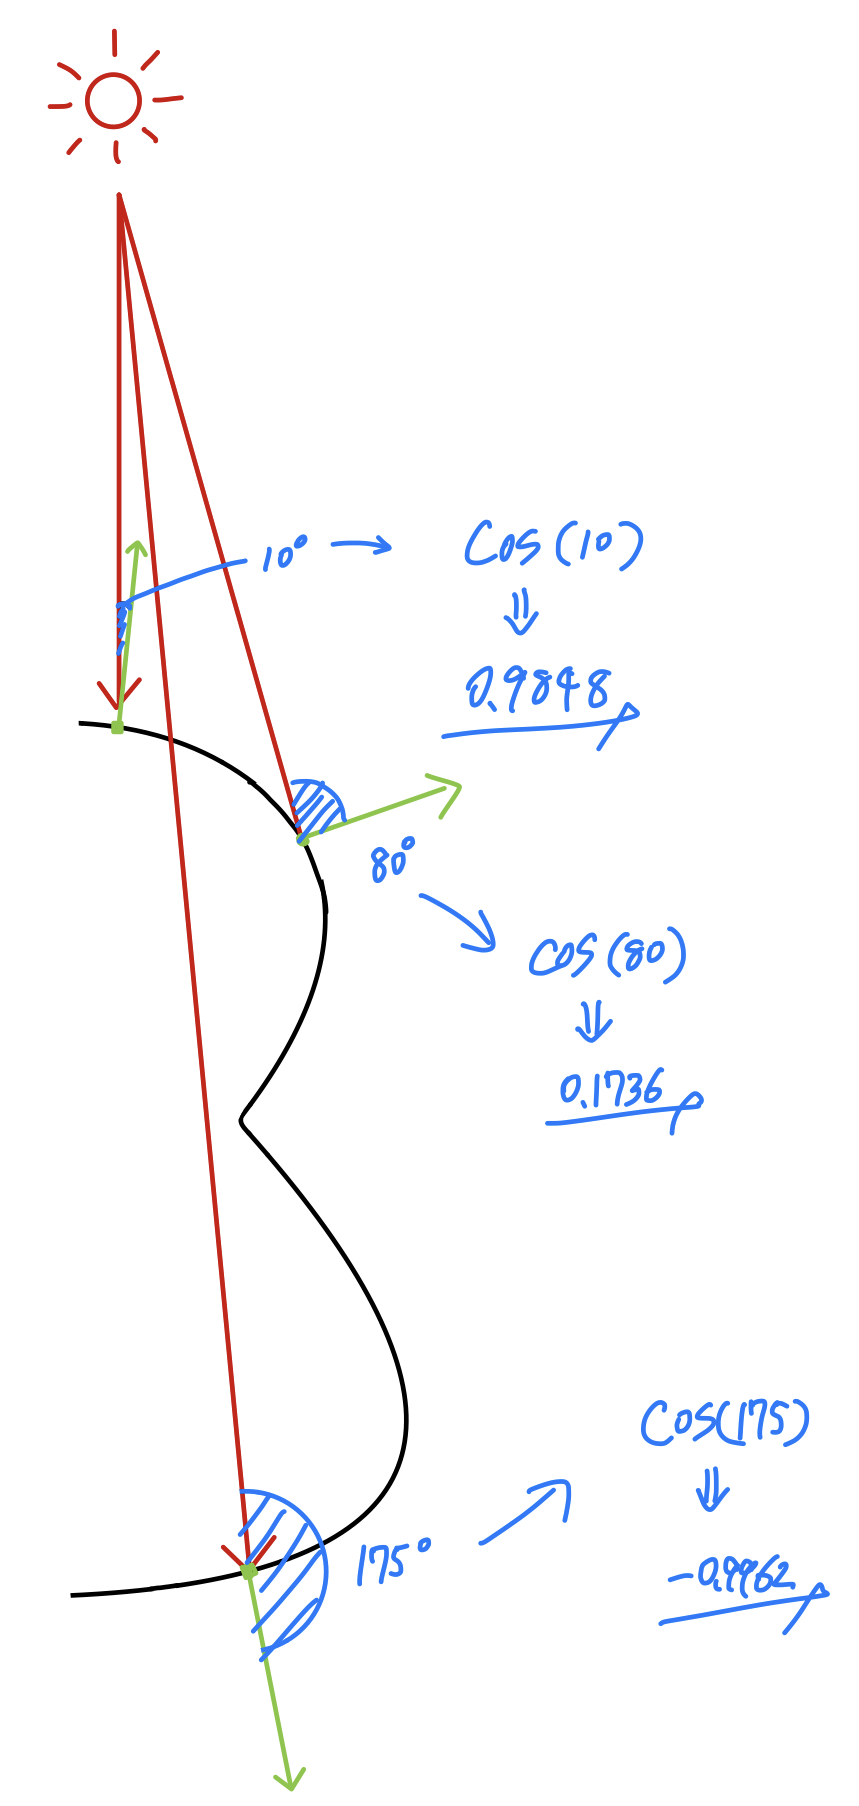 10°
Cos(10)
0.9848
80°
cos(80)
0.1736
175°
Cos(175)
-0.9962